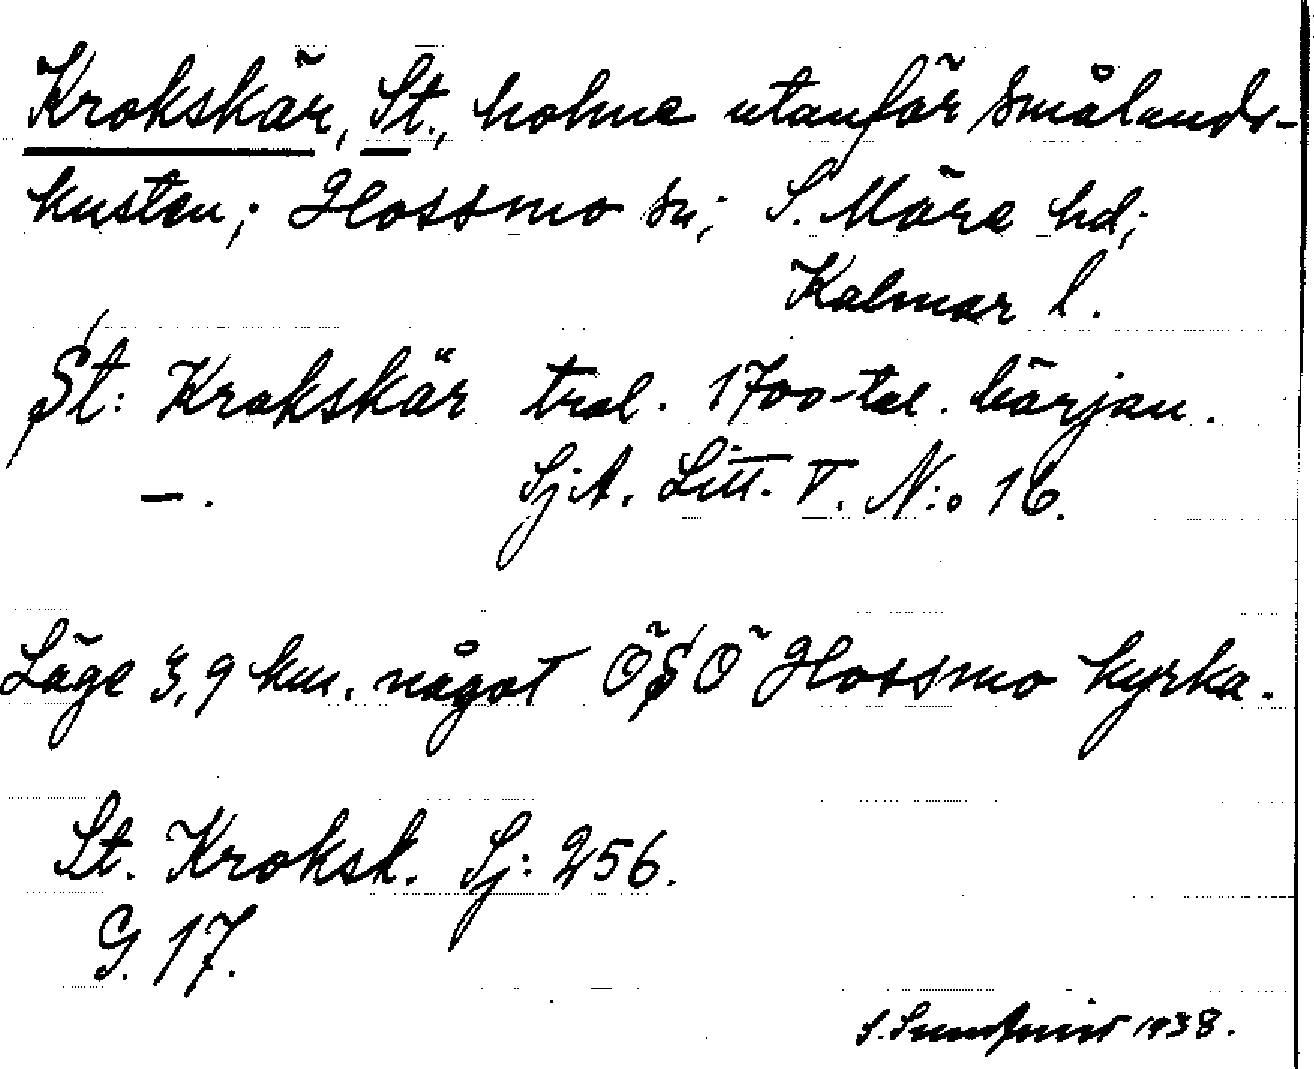 Krokskär, St., holme utanför Smålands-
kusten; Hossmo sn; S. Möre hd;
Kalmar l.
St: Krokskär trol. 1700-tal. början.
— . SjA. Litt. V. N:o 16.
Läge 3,9 km. något ÖSÖ Hossmo kyrka.
St. Kroksk. Sj: 256.
G. 17.
S. Sundqvist 1938.